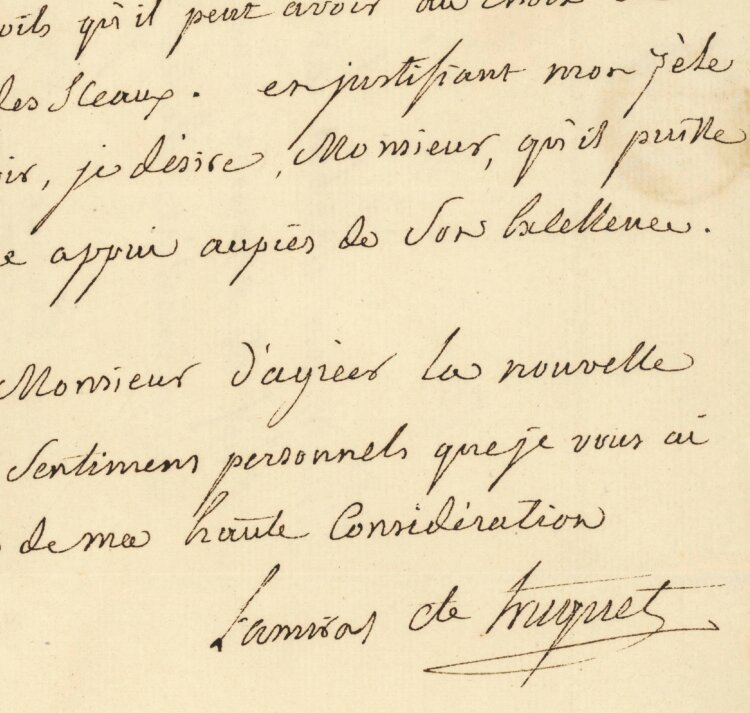 oits qu'il peut avoir au choix de
des Sceaux. en justifiant mon zèle
ir, je désire, Monsieur, qu'il puisse
e appui auprès de Son Excellence.
Monsieur d'agréer la nouvelle
sentimens personnels que je vous ai
de ma haute Considération
L'amiral Cte Truguet